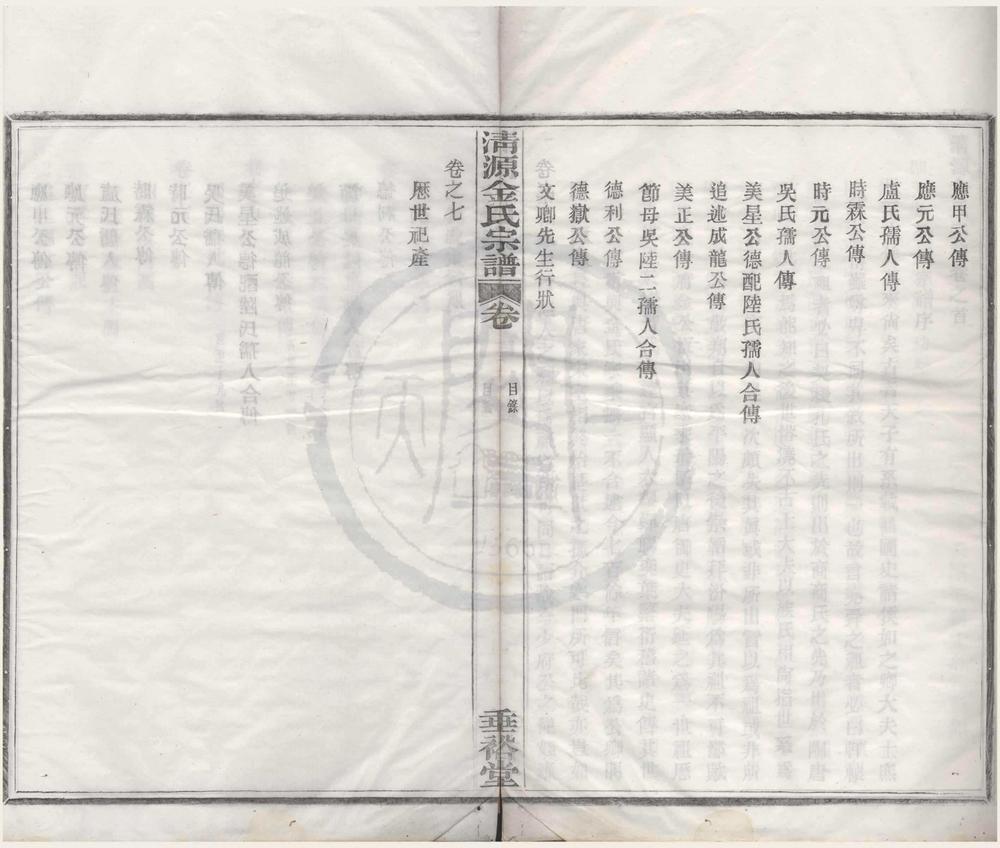 應甲公傳
應元公傳
盧氏孺人傳
時霖公傳
時元公傳
吳氏孺人傳
美星公德配陸氏孺人合傳
追述成龍公傳
美正公傳
節母吳陸二孺人合傳
德利公傳
德嶽公傳
文卿先生行狀
清源金氏宗譜
卷
目錄
垂裕堂
卷之七
歷世祀產